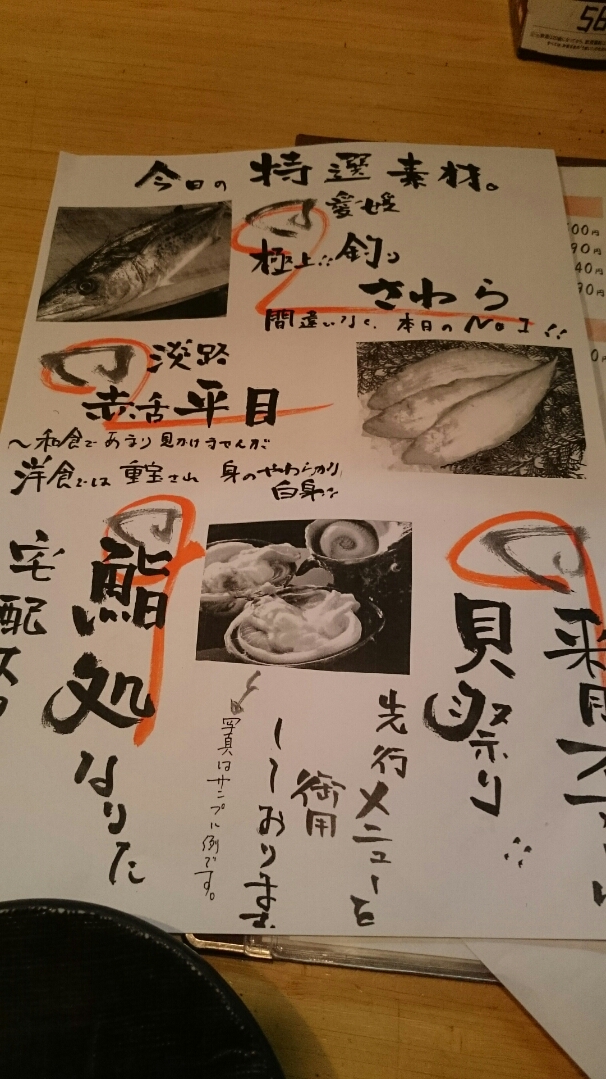 今日の 特選素材。
愛媛
極上!! 釣り
さわら
間違いなく、本日のNo1!!
淡路
赤舌平目
〜和食であまり見かけませんが
洋食では重宝され 身のやわらかい
白身!!
来月
貝祭り
先行メニューを
御用
しております。
写真はサンプル例です。
鮨処 なりた
宅配
00円
90円
40円
90円
56